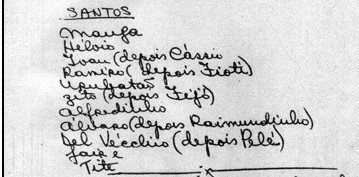 SANTOS
Mauga
Hélvio
Ivan (depois Cássio
Ramiro ( depois Fioti)
Urubatão
Zito (depois Feijó)
Alfredinho
Álvaro (depois Raimundinho)
Del Vecchio (depois Pelé)
Jair e
Tite